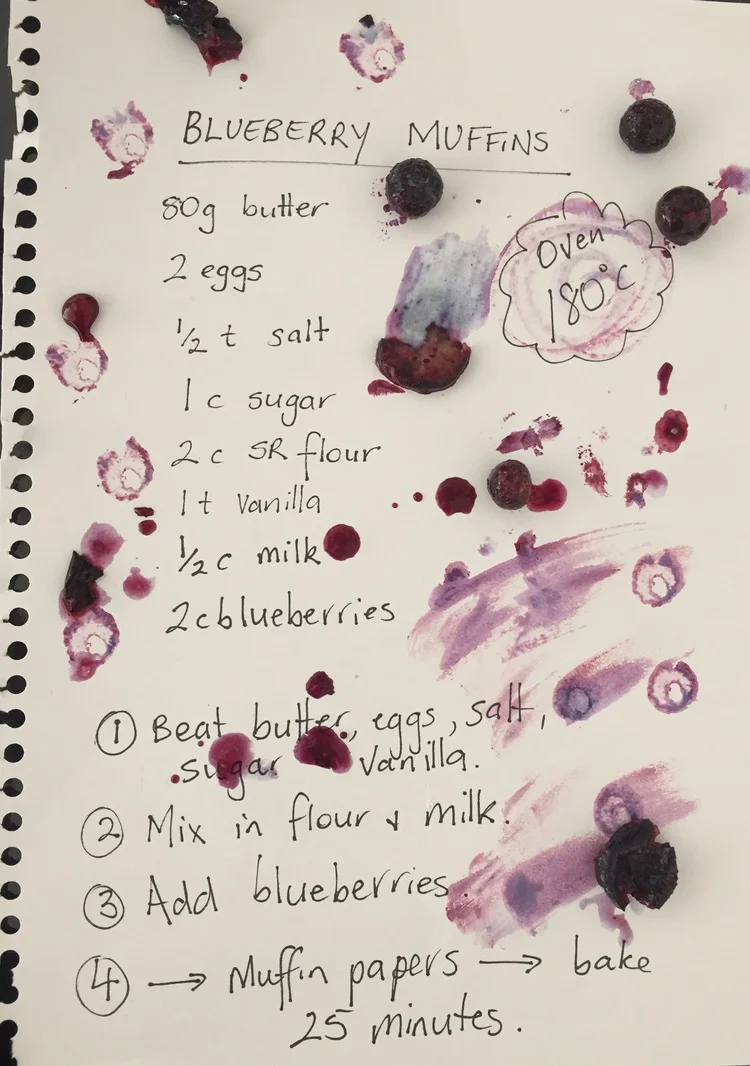 BLUEBERRY MUFFINS
80g butter
2 eggs
Oven
180°C
1/2 t salt
1 c sugar
2 c SR flour
1 t Vanilla
1/2 c milk
2 c blueberries
① Beat butter, eggs, salt,
sugar Vanilla.
② Mix in flour & milk.
③ Add blueberries.
④ → Muffin papers → bake
25 minutes.